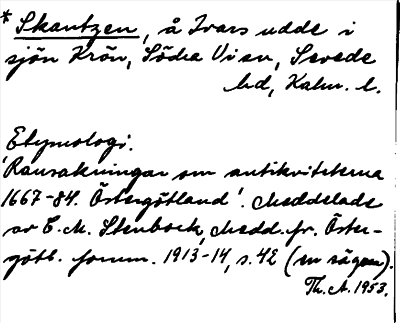 * Skantzen, å Ivars udde i
sjön Krön, Södra Vi sn, Sevede
hd, Kalm. l.
Etymologi.
'Ransakningar om antikviteterna
1667-84. Östergötland'. Meddelade
av E. M. Stenbock, Medd. fr. Öster-
götl. fornm. 1913-14, s. 42 (en sägen).
Th. A. 1953.